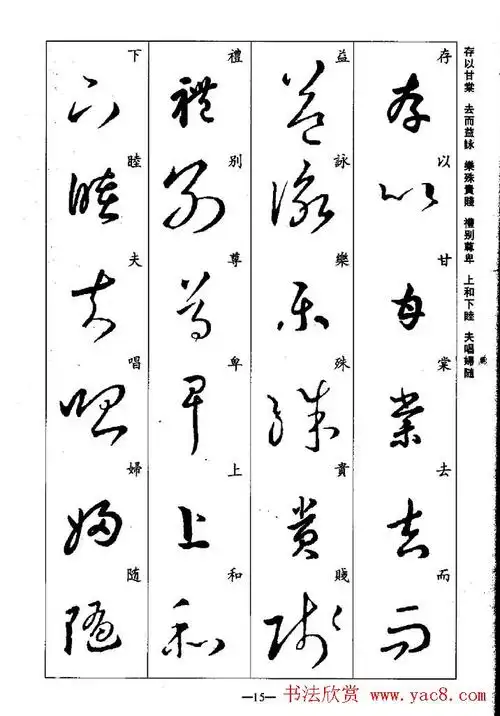 存以甘棠 去而益詠 樂殊貴賤 禮别尊卑 上和下睦 夫唱婦随
存以甘棠去而
益詠樂殊貴賤
禮别尊卑上和
下睦夫唱婦随
—15—
书法欣赏
www.yac8.com